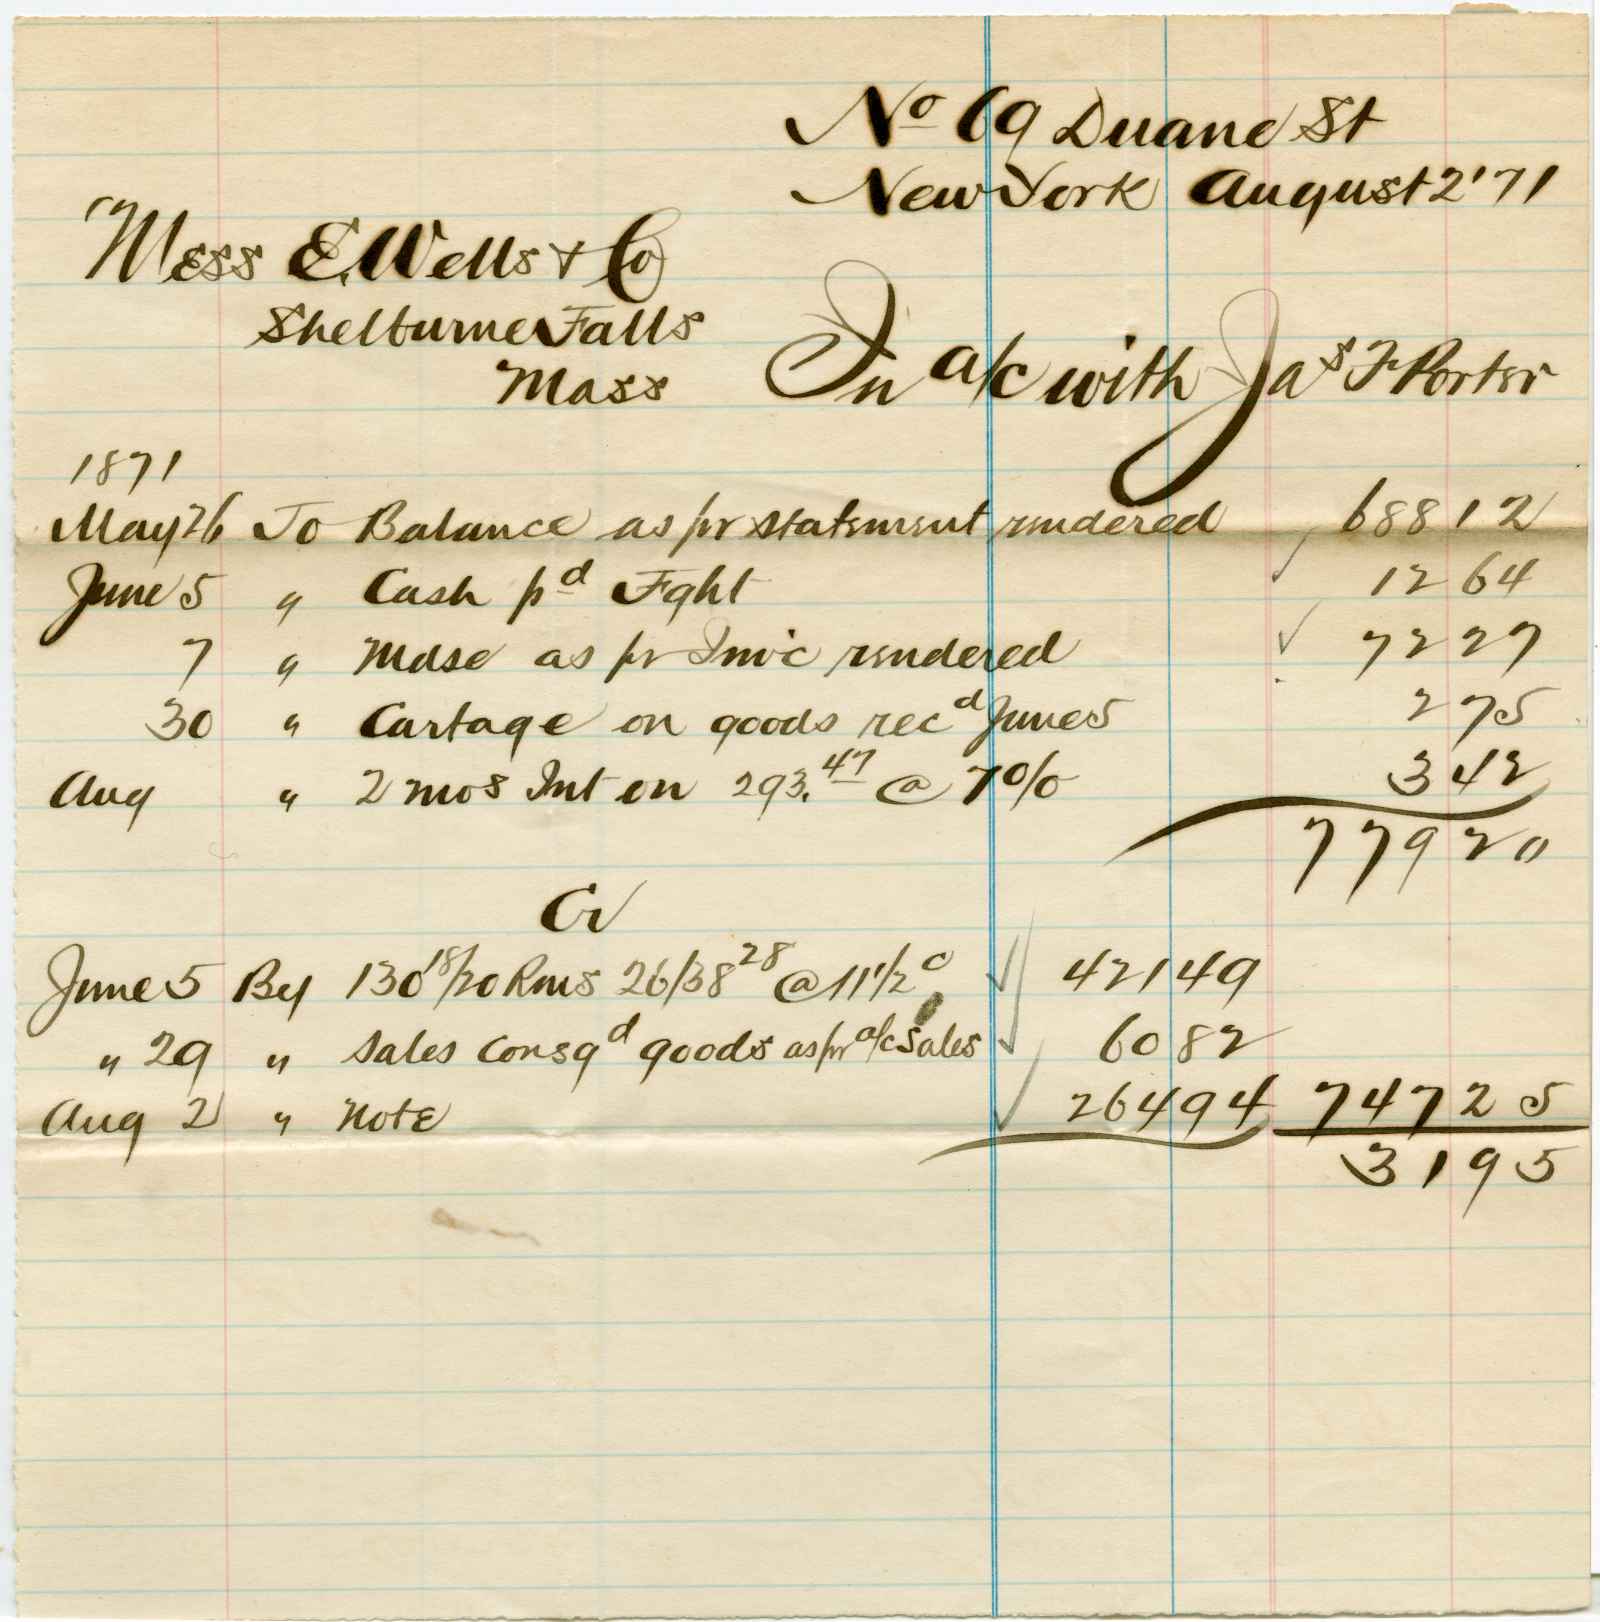 No 69 Duane St
New York August 2 '71
Mess E. Wells & Co
Shelburne Falls
Mass
In a/c with Jas F Porter
1871
May 26 To Balance as pr statement rendered 688 12
June 5 " Cash pd Fght 12 64
7 " Mdse as pr Invic rendered 72 27
30 " Cartage on goods recd June 5 2 75
Aug " 2 mos Int on 293.47 @ 7 o/o 3 42
779 20
Cr
June 5 By 130 18/20 Rms 26/38 28 @ 11 1/2 c 421 49
" 29 " Sales Consgd goods as pr a/c Sales 60 82
Aug 2 " Note 264 94 747 25
31 95